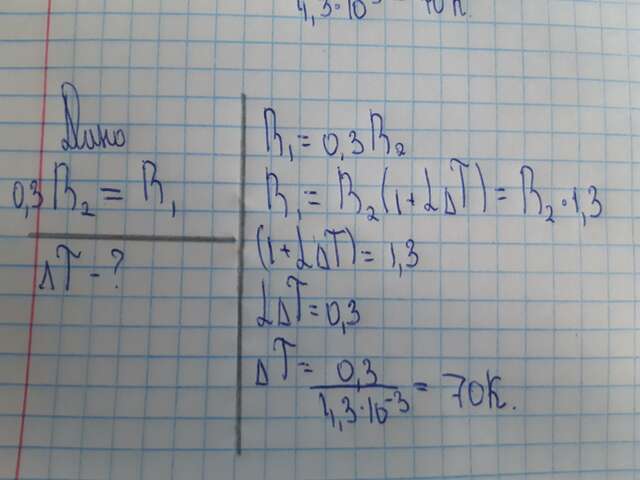 4,3·10⁻³ 70К.
Дано
0,3 R₂ = R₁
ΔT - ?
R₁ = 0,3 R₂
R₁ = R₂ (1 + αΔT) = R₂ · 1,3
(1 + αΔT) = 1,3
αΔT = 0,3
ΔT = 0,3 / 4,3·10⁻³ = 70К.